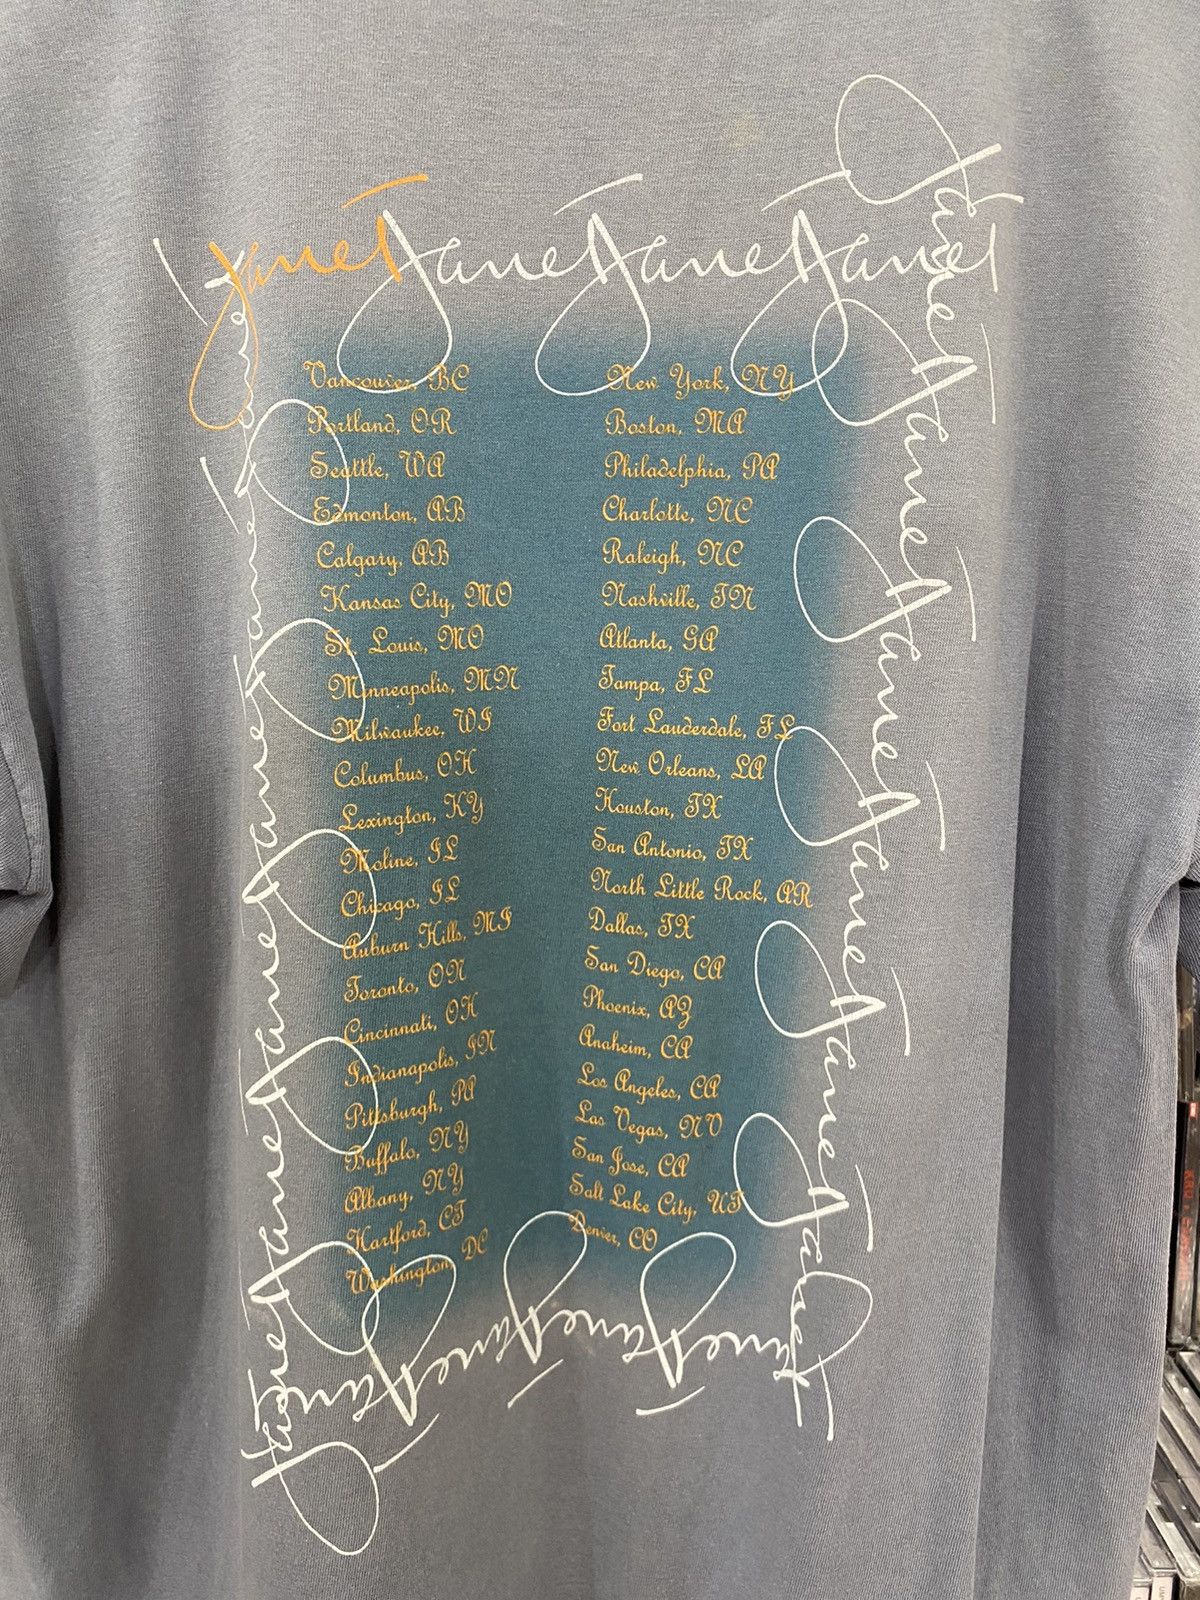 Janet Janet Janet Janet
Janet Janet Janet Janet Janet Janet
Vancouver, BC
Portland, OR
Seattle, WA
Edmonton, AB
Calgary, AB
Kansas City, MO
St. Louis, MO
Minneapolis, MN
Milwaukee, WI
Columbus, OH
Lexington, KY
Moline, IL
Chicago, IL
Auburn Hills, MI
Toronto, ON
Cincinnati, OH
Indianapolis, IN
Pittsburgh, PA
Buffalo, NY
Albany, NY
Hartford, CT
Washington, DC
New York, NY
Boston, MA
Philadelphia, PA
Charlotte, NC
Raleigh, NC
Nashville, TN
Atlanta, GA
Tampa, FL
Fort Lauderdale, FL
New Orleans, LA
Houston, TX
San Antonio, TX
North Little Rock, AR
Dallas, TX
San Diego, CA
Phoenix, AZ
Anaheim, CA
Los Angeles, CA
Las Vegas, NV
San Jose, CA
Salt Lake City, UT
Denver, CO
Janet Janet Janet Janet
Janet Janet Janet Janet Janet Janet